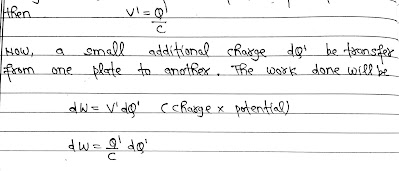 then V' = Q'/C
Now, a small additional charge dQ' be transfer
from one plate to another. The work done will be
dW = V'dQ' (charge × potential)
dW = Q'/C dQ'